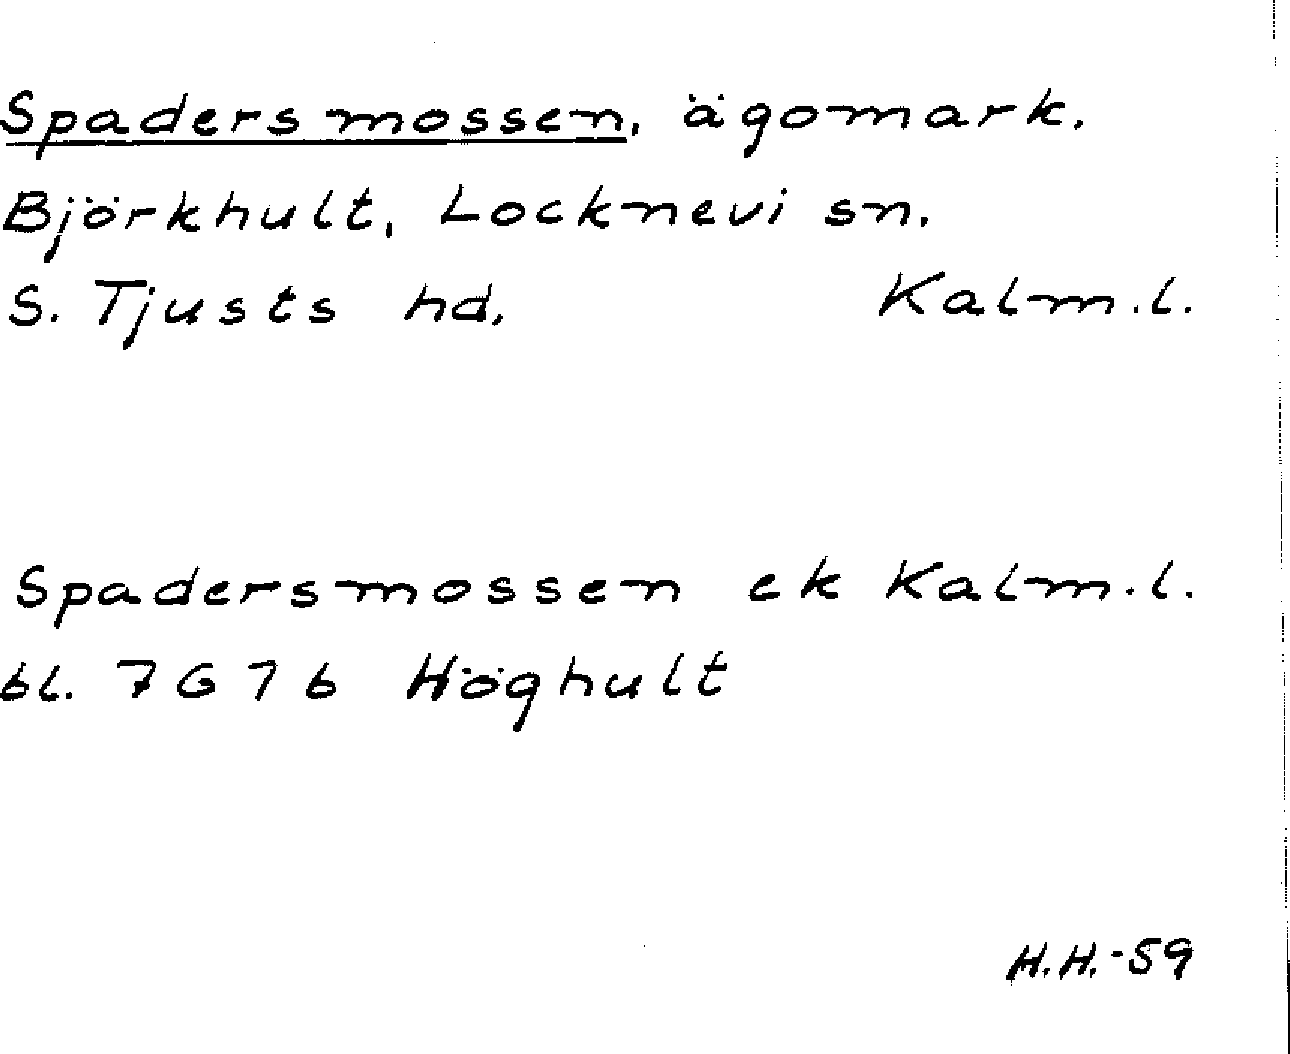 Spadersmossen, ägomark.
Björkhult, Locknevi sn.
S. Tjusts hd. Kalm.l.
Spadersmossen ek Kalm.l.
bl. 7G7b Höghult
H.H.-59